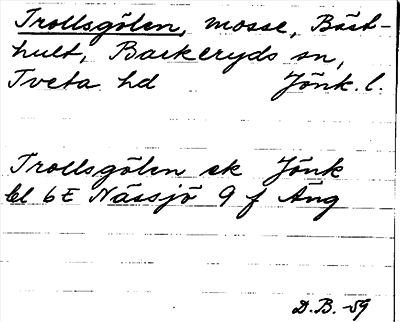 Trollsgölen, mosse, Böst-
hult, Barkeryds sn,
Tveta hd Jönk. l.
Trollsgölen ek Jönk
bl 6E Nässjö 9 f Äng
D.B. -59